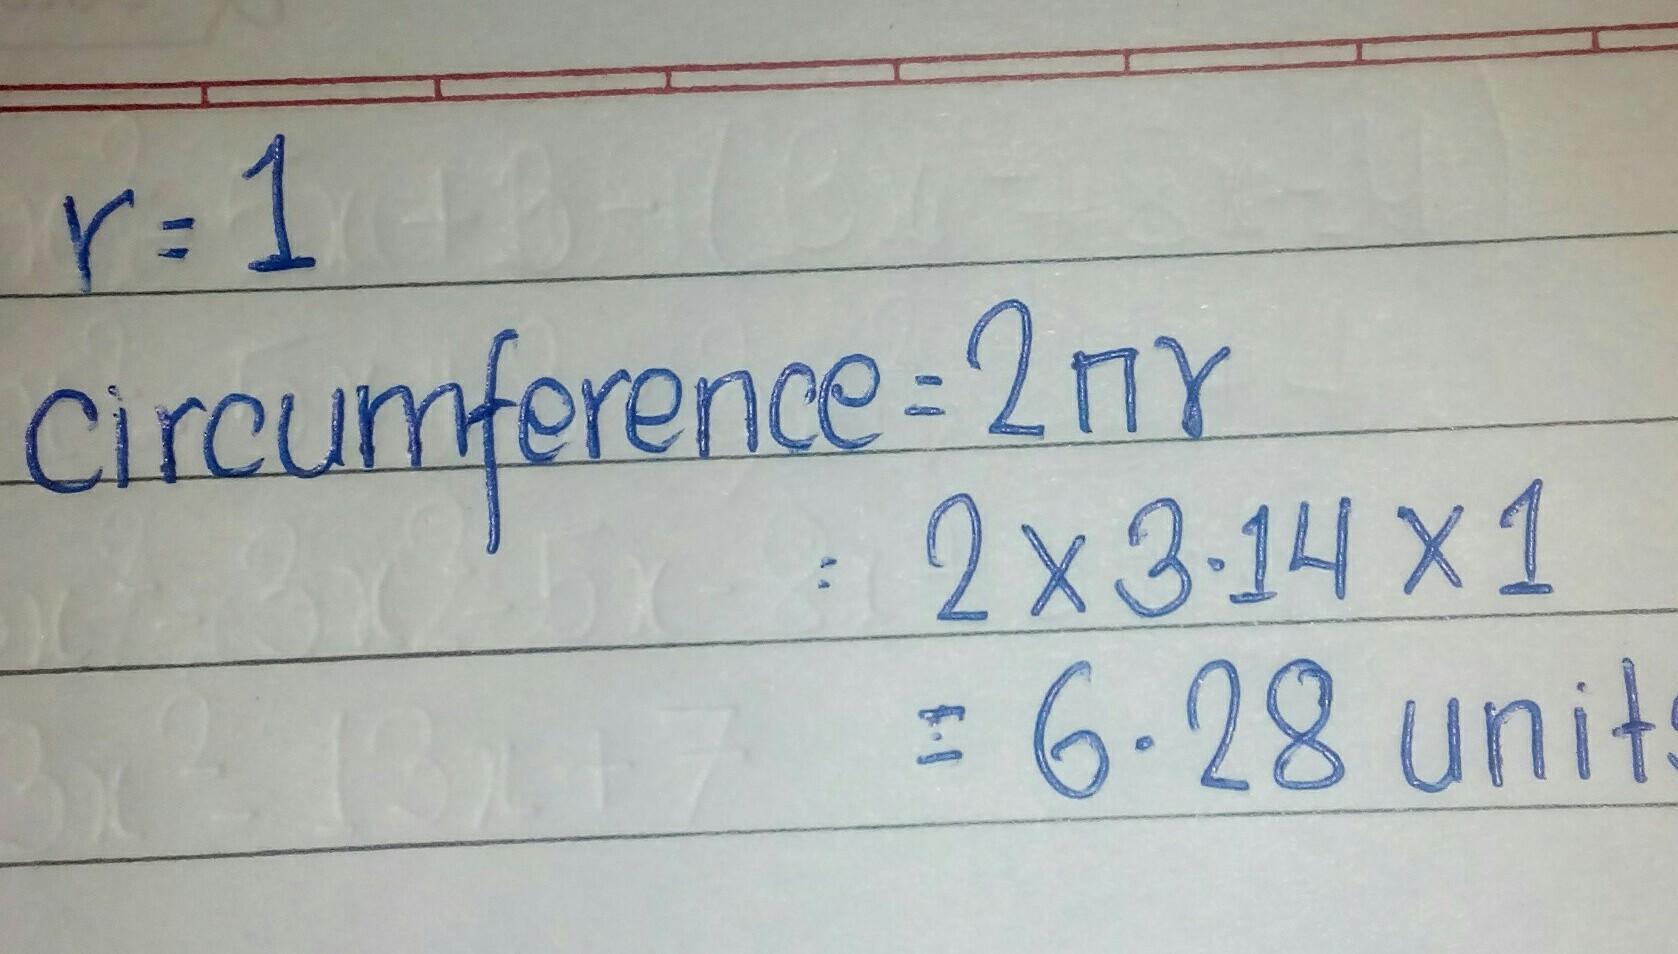 r = 1
circumference = 2πr
= 2 x 3.14 x 1
= 6.28 units